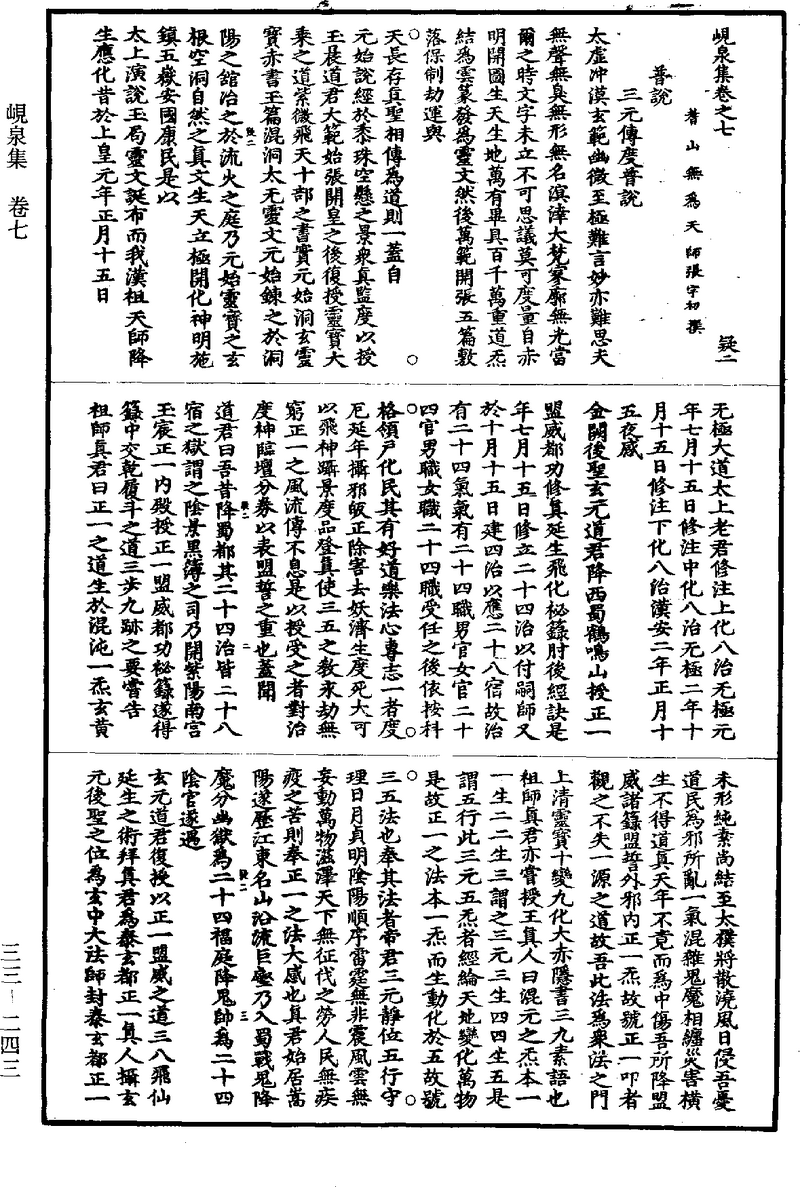 峴泉集卷之七
疑二
耆山無為天師張宇初撰
普說
三元傳度普說
太虛冲漠玄範幽微至極難言妙亦難思夫
無聲無臭無形無名溟涬大梵寥廓無光當
爾之時文字未立不可思議莫可度量自赤
明開圖生天生地萬有畢具百千萬重道炁
結為雲篆發為靈文然後萬範開張五篇敷
落保制劫運與
天長存真聖相傳為道則一蓋自
元始說經於黍珠空懸之景衆真監度以授
玉晨道君大範始張開皇之後復授靈寶大
乘之道紫微飛天十部之書實元始洞玄靈
寶赤書玉篇混洞太无靈文元始鍊之於洞
陽之館冶之於流火之庭乃元始靈寶之玄
根空洞自然之真文生天立極開化神明施
鎮五嶽安國康民是以
太上演說玉局靈文誕布而我漢祖天師降
生應化昔於上皇元年正月十五日
无極大道太上老君修注上化八治无極元
年七月十五日修注中化八治无極二年十
月十五日修注下化八治漢安二年正月十
五夜感
金闕後聖玄元道君降西蜀鶴鳴山授正一
盟威都功修真延生飛化秘籙肘後經訣是
年七月十五日修立二十四治以付嗣師又
於十月十五日建四治以應二十八宿故治
有二十四氣氣有二十四職男官女官二十
四官男職女職二十四職受任之後依按科
格領戶化民其有好道樂法心專志一者度
厄延年攝邪皈正除害去妖濟生度死大可
以飛神躡景度品登真使三五之教永劫無
窮正一之風流傳不息是以授受之者對治
度神臨壇分券以表盟誓之重也蓋聞
道君曰吾昔降蜀都其二十四治皆二十八
宿之獄謂之陰景黑簿之司乃開紫陽南宮
玉宸正一內殿授正一盟威都功秘籙遂得
籙中交乾履斗之道三步九跡之要嘗告
祖師真君曰正一之道生於混沌一炁玄黃
未形純素尚結至太樸將散澆風日侵吾憂
道民為邪所亂一氣混雜鬼魔相纏災害橫
生不得道真天年不竟而為中傷吾所降盟
威諸籙盟誓外邪內正一炁故號正一叩者
觀之不失一源之道故吾此法為衆法之門
上清靈寶十變九化大亦隱書三九素語也
祖師真君亦嘗授王真人曰混元之炁本一
一生二二生三謂之三元三生四四生五是
謂五行此三元五炁者經綸天地變化萬物
是故正一之法本一炁而生動化於五故號
三五法也奉其法者帝君三元靜位五行守
理日月貞明陰陽順序雷霆無非震風雲無
妄動萬物滋澤天下無征伐之勞人民無疾
疫之苦則奉正一之法大感也真君始居嵩
陽遂歷江東名山沿流巨壑乃入蜀戰鬼降
魔分幽獄為二十四福庭降鬼帥為二十四
陰官遂遇
玄元道君復授以正一盟威之道三八飛仙
延生之術拜真君為泰玄都正一真人攝玄
元後聖之位為玄中大法師封泰玄都正一
峴泉集　卷七
三三－二四三